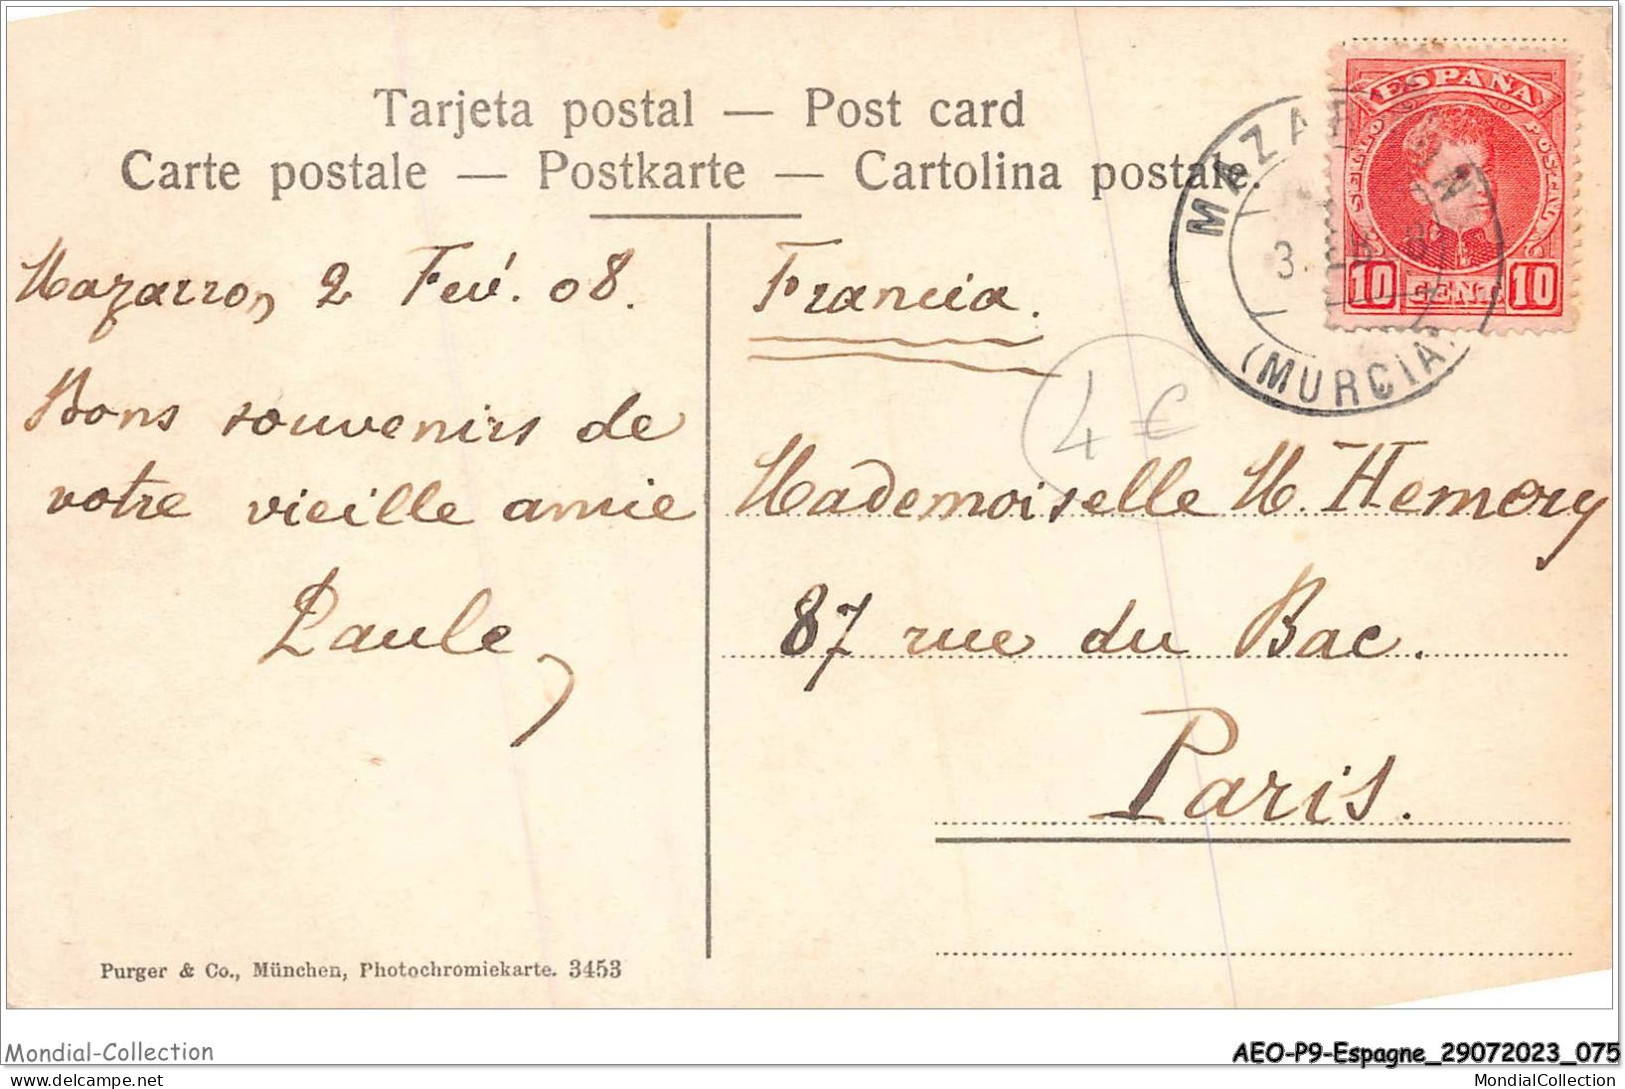 Tarjeta postal — Post card
Carte postale — Postkarte — Cartolina postale.
Mazarron, 2 Fev. 08.
Bons souvenirs de
votre vieille amie
Paule,
Francia.
4€
Mademoiselle M. Hemery
87 rue du Bac.
Paris.
ESPAÑA
10 CENT. 10
(MURCIA)
Purger & Co., München, Photochromiekarte. 3453
Mondial-Collection
AEO-P9-Espagne_29072023_075
www.delcampe.net
MondialCollection